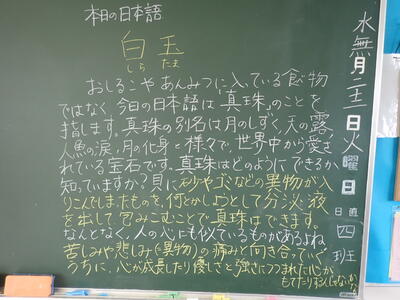 本日の日本語
白玉
しら たま
おしるこやあんみつに入っている食べ物
ではなく、今日の日本語は、真珠のことを
指します。真珠の別名は月のしずく、天の露、
人魚の涙、月の化身と様々で、世界中から愛さ
れている宝石です。真珠はどのようにできるか
知っていますか?貝に石やゴミなどの異物が入
りこんでしまたものを、何とかしようとして分泌液
を出して包みこむことで真珠はできます。
なんとなく、人の心にも似ているものがあるよね。
苦しみや悲しみ(異物)の痛みと向き合っていく
うちに、心が成長したり優しさと強さにつつまれた心が
もてたりするんじゃないかな
水無月二十三日火曜日
日直
四班